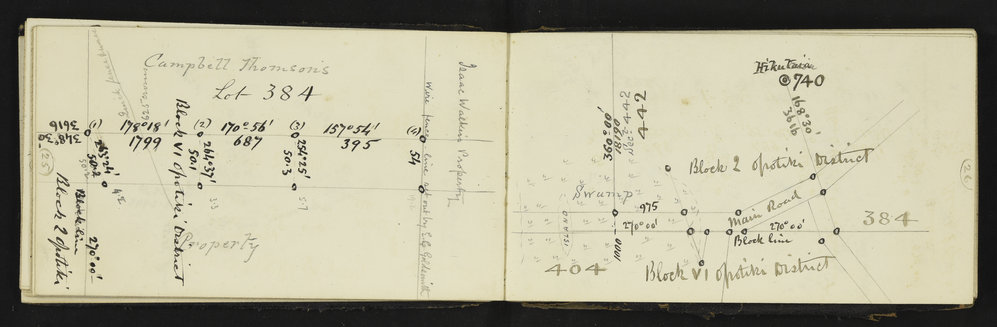 Campbell Thomson's
Lot 384
(1) 178°18' (2) 170°56' (3) 157°54' (4)
1799 687 395
3616
348°30'
(25)
263°24'
50.2
264°37'
50.1
254°25'
50.3
54
48
53
57
Block VI Opotiki District
Block line 270°00'
Block 2 Opotiki
Property
Wire fence line
Isaac Walkin Property
Hikutaia
740
168°30'
3616
360°00'
1810
Sec 442
442
(26)
Block 2 Opotiki District
Swamp
975
270°00'
Main Road
270°00'
Block line
384
1100
404
Block VI Opotiki District